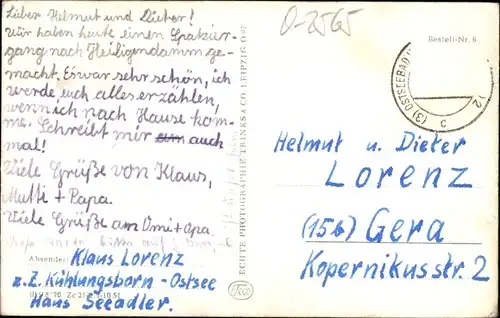 Lieber Helmut und Dieter!
Wir haben heute einen Spazier-
gang nach Heiligendamm ge-
macht. Es war sehr schön, ich
werde euch alles erzählen,
wenn ich nach Hause kom-
me. Schreibt mir auch
mal!
Viele Grüße von Klaus,
Mutti + Papa.
Viele Grüße an Omi + Opa.
Absender:
Klaus Lorenz
z. Z. Kühlungsborn - Ostsee
Haus Seeadler.
ECHTE PHOTOGRAPHIE TRINKS & CO LEIPZIG O 27
0-2565
Bestell-Nr. 6
(3) OSTSEEBAD
c
Helmut u. Dieter
Lorenz
(15b) Gera
Kopernikusstr. 2